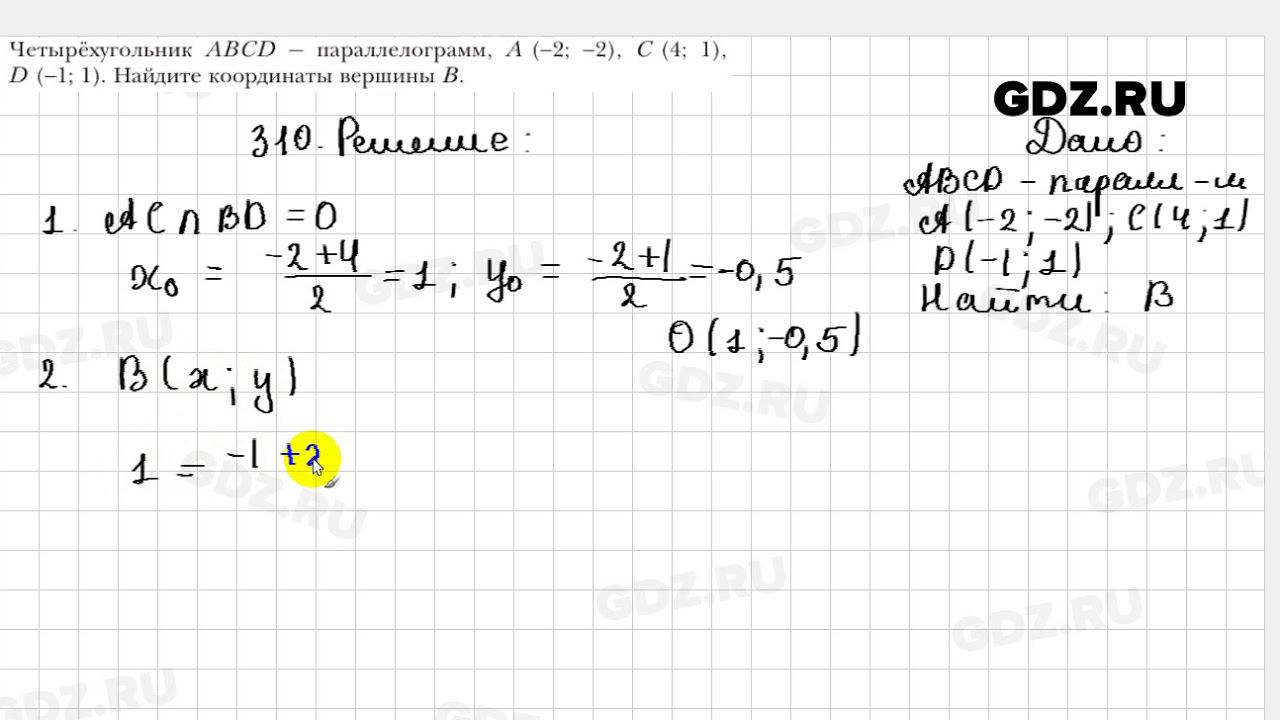 Четырёхугольник ABCD − параллелограмм, A (−2; −2), C (4; 1),
D (−1; 1). Найдите координаты вершины B.
GDZ.RU
310. Решение:
Дано:
ABCD - паралл-м
A(-2; -2); C(4; 1)
D(-1; 1)
Найти: B
1. AC ∩ BD = O
x₀ = (-2+4)/2 = 1; y₀ = (-2+1)/2 = -0,5
O(1; -0,5)
2. B(x; y)
1 = -1 +
GDZ.RU
GDZ.RU
GDZ.RU
GDZ.RU
GDZ.RU
GDZ.RU
GDZ.RU
GDZ.RU
GDZ.RU
GDZ.RU